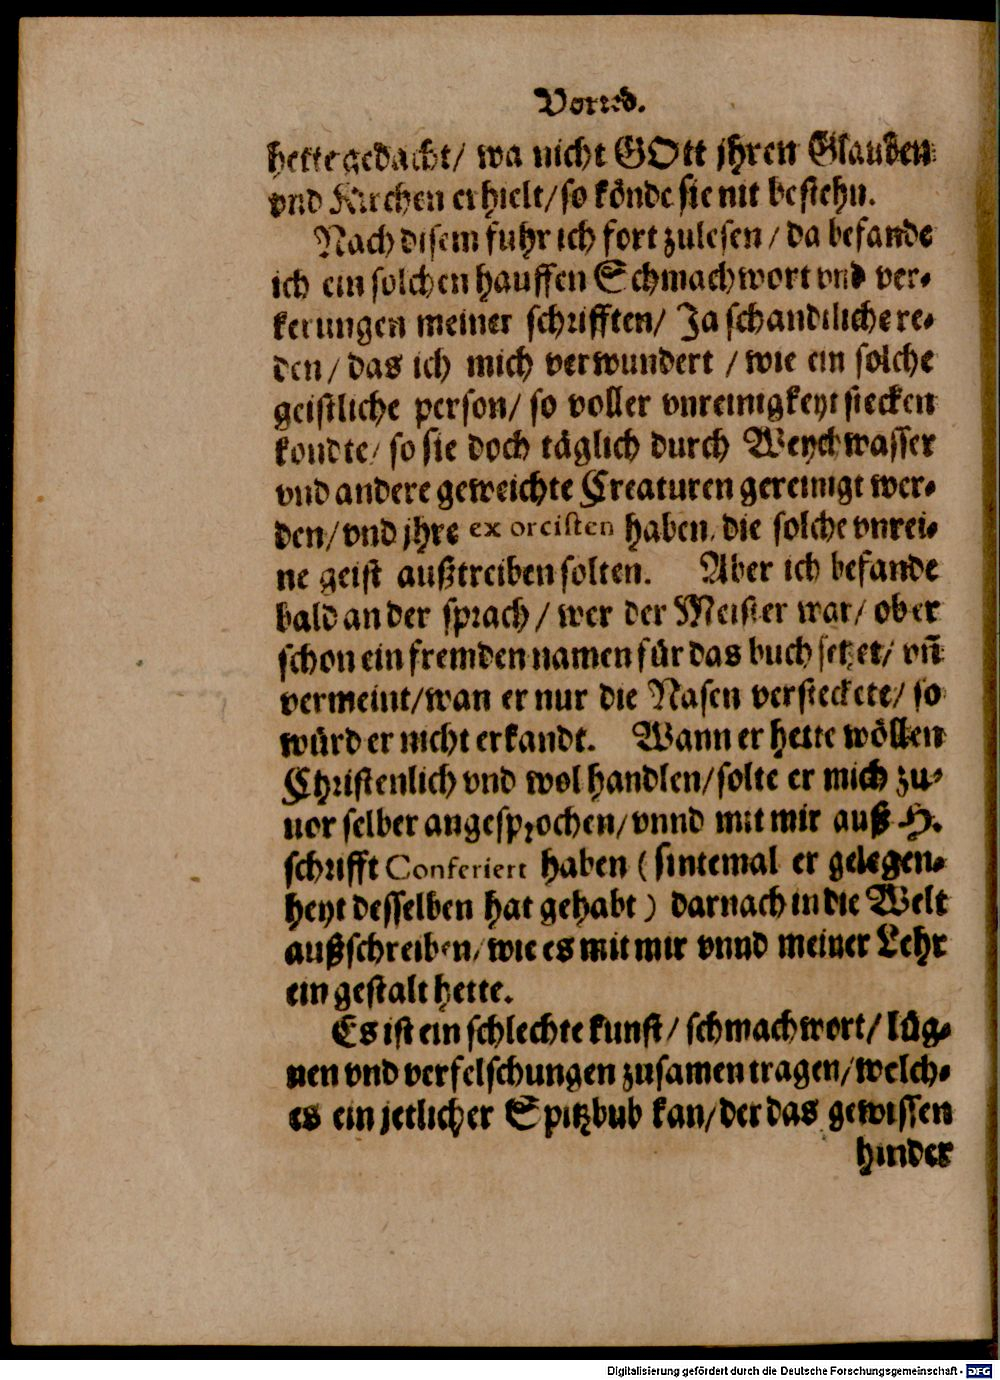 Vorred.
hette gedacht/ wa nicht GOtt jhren Glauben
vnd Kirchen erhielt/ so könde sie nit bestehn.
Nach disem fuhr ich fort zulesen/ da befande
ich ein solchen hauffen Schmachwort vnd ver-
kerungen meiner schrifften/ Ja schandtliche re-
den/ das ich mich verwundert / wie ein solche
geistliche person/ so voller vnreinigkeyt stecken
kondte/ so sie doch täglich durch Weychwasser
vnd andere geweichte Creaturen gereinigt wer-
den/ vnd jhre exorcisten haben, die solche vnrei-
ne geist außtreiben solten. Aber ich befande
bald an der sprach/ wer der Meister war/ ob er
schon ein fremden namen für das buch setzet/ vñ
vermeint/ wan er nur die Nasen versteckete/ so
würd er nicht erkandt. Wann er hette wöllen
Christenlich vnd wol handlen/ solte er mich zu-
uor selber angesprochen/ vnnd mit mir auß H.
schrifft Conferiert haben (sintemal er gelegen-
heyt desselben hat gehabt) darnach in die Welt
außschreiben/ wie es mit mir vnnd meiner Lehr
ein gestalt hette.
Es ist ein schlechte kunst/ schmachwort/ lüg-
nen vnd verfelschungen zusamen tragen/ welch-
es ein jetlicher Spitzbub kan/ der das gewissen
hinder
Digitalisierung gefördert durch die Deutsche Forschungsgemeinschaft - DFG